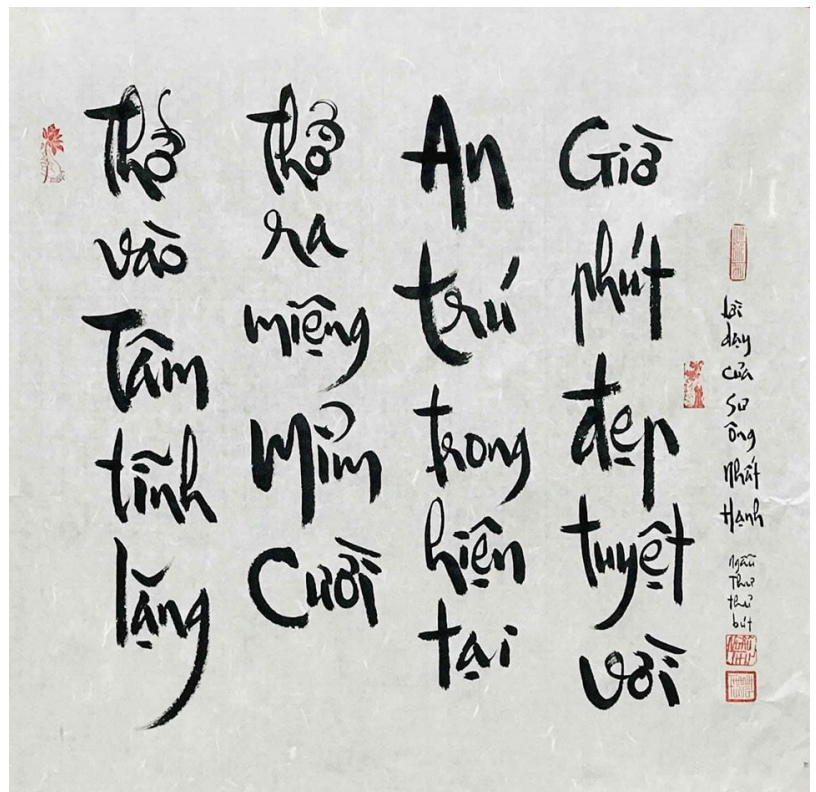 Thở
vào
Tâm
tĩnh
lặng
Thở
ra
miệng
Mỉm
Cười
An
trú
trong
hiện
tại
Giờ
phút
đẹp
tuyệt
vời
lời
dạy
của
Sư
Ông
Nhất
Hạnh
Ngẫu
Thư
thủ
bút